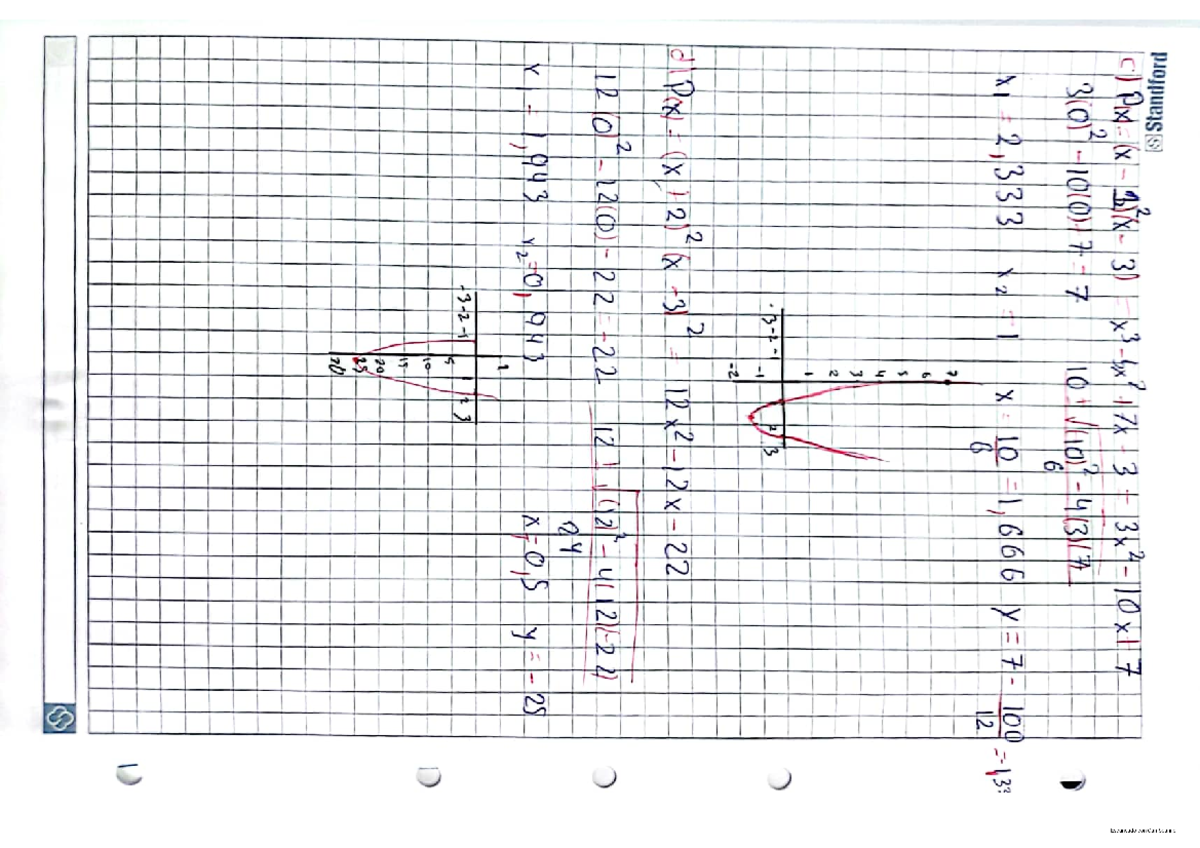 Standford
c) P(x) = (x - 1)²(x - 3) = x³ - 5x² + 7x - 3 = 3x² - 10x + 7
3(0)² - 10(0) + 7 = 7 10 ± √(10)² - 4(3)(7
6
x1 = 2,333 x2 = 1 x = 10/6 = 1,666 y = 7 - 100/12 = -1,3
7
6
5
4
3
2
1
-3 -2 -1 2 3
-1
-2
d) P(x) = (x + 2)² (x - 3)² = 12x² - 12x - 22
12(0)² - 12(0) - 22 = -22 12 ± √(12)² - 4(12)(-22)
24
x1 = 1,943 x2 = 0,943 x = 0,5 y = -25
1
-3 -2 -1 1 2 3
5
10
15
20
25